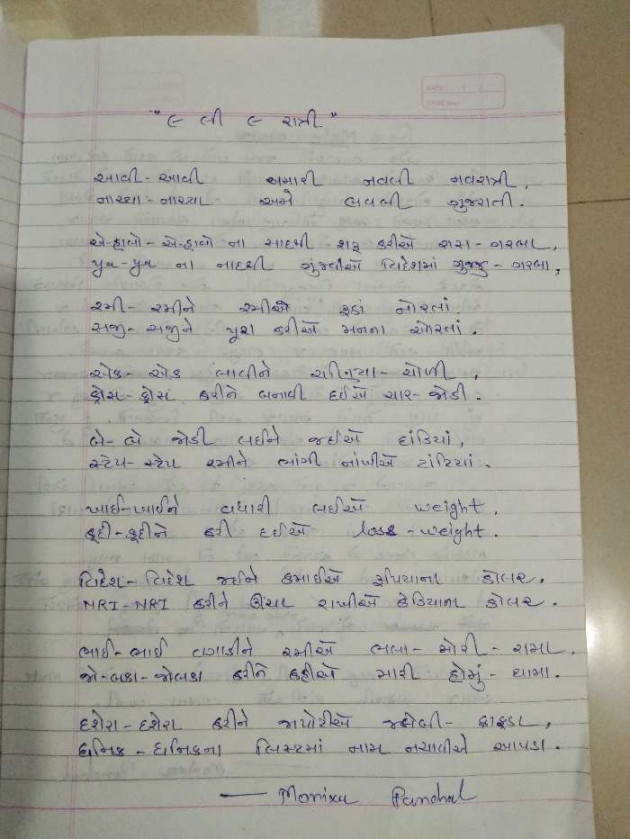 "૯ લી ૯ રાત્રી"
આવી-આવી અમારી નવલી નવરાત્રી,
નાચ્યા-નાચ્યા અમે લવલી ગુજરાતી.
એ-હાલો-એ-હાલો ના સાદથી શરૂ કરીએ રાસ-ગરબા,
પુમ-પુમ ના નાદથી ગુંજવીએ વિદેશમાં ગુજ્જુ-ગરબા,
રમી-રમીને રમીએ રૂડાં નોરતાં.
સજી-સજીને પૂરા કરીએ મનના ઓરતાં.
એક-એક લાવીને ચણિયા-ચોળી,
ક્રોસ-ક્રોસ કરીને બનાવી દઈએ ચાર-જોડી.
બે-બે જોડી લઈને જઈએ દાંડિયાં,
સ્ટેપ-સ્ટેપ રમીને ભાંગી નાંખીએ ટાંટિયાં.
ખાઈ-ખાઈને વધારી લઈએ weight,
કૂદી-કૂદીને કરી દઈએ loss-weight.
વિદેશ-વિદેશ જઈને કમાઈએ રૂપિયાના ડોલર,
NRI-NRI કરીને ઊંચા રાખીએ કેડિયાના કોલર.
ભાઈ-ભાઈ વગાડીને રમીએ ભલા-મોરી-રામા,
જો-બકા-જોબકા કરીને કહીએ મારી હોમું-ધામા.
દશેરા-દશેરા કરીને જાપોટીએ જલેબી-ફાફડા,
ધનિક-ધનિકના લિસ્ટમાં નામ નચાવીએ આપડા.
— Monika Panchal